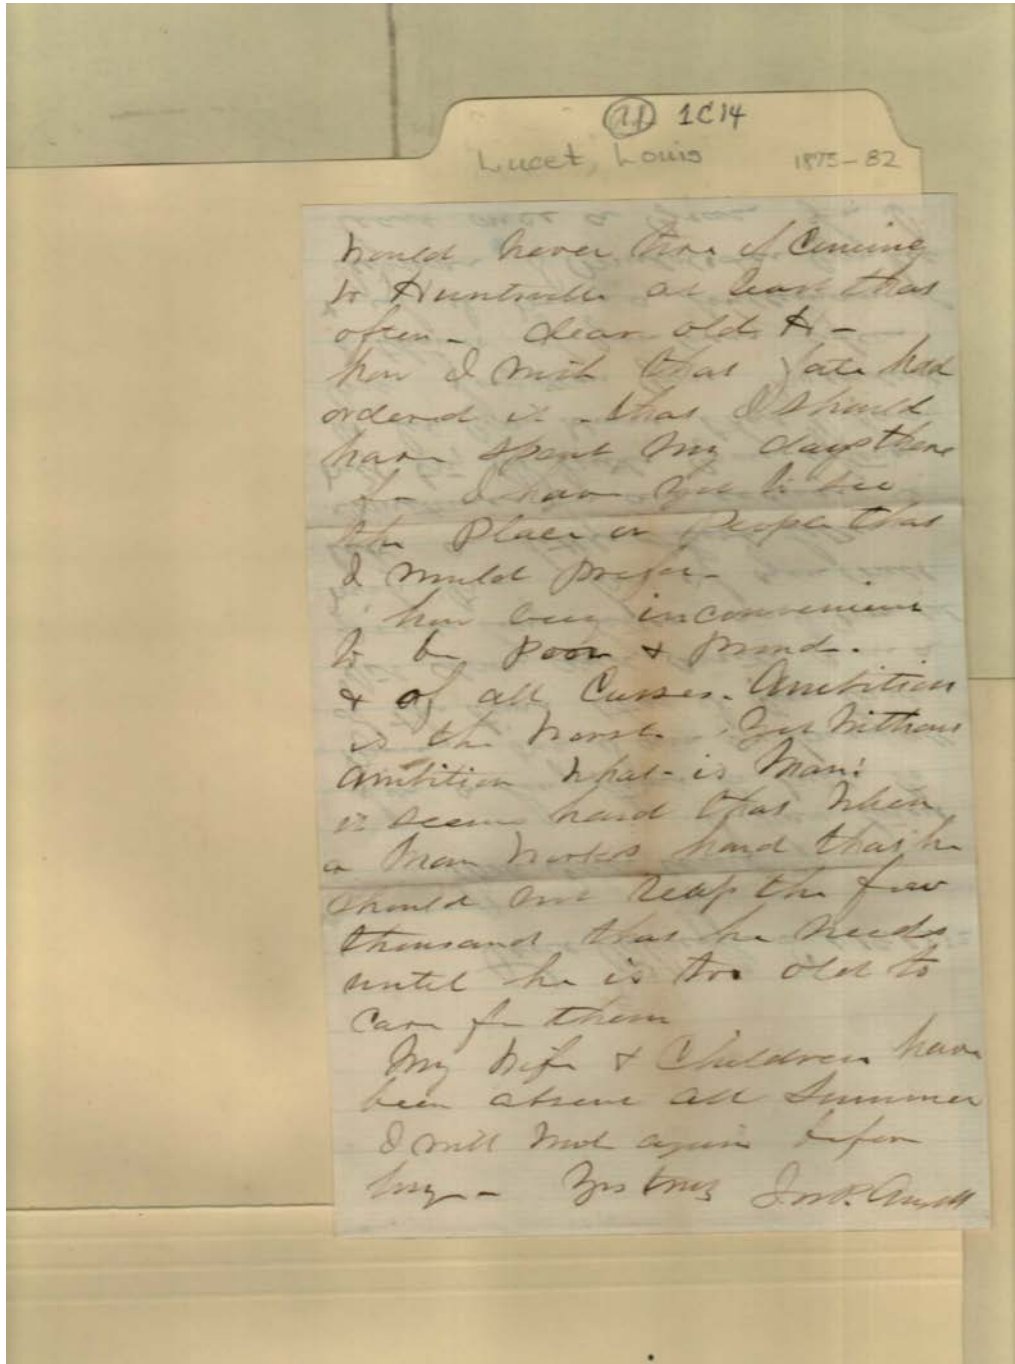 1C14
Lucet, Louis 1875-82
would never tire of Coming
to Huntsville at least that
often - dear old H -
how I wish that fate had
ordered it that I should
have spent my days there
for I have yet to see
the Place or People that
I would prefer -
how very inconvenient
to be poor & proud.
& of all Curses. Ambition
is the worst. Yet without
ambition what is Man?
it seems hard that when
a Man works hard that he
should not reap the few
thousand that he needs
until he is too old to
care for them
My Wife & Children have
been absent all Summer
I will again before
long - Yrs truly